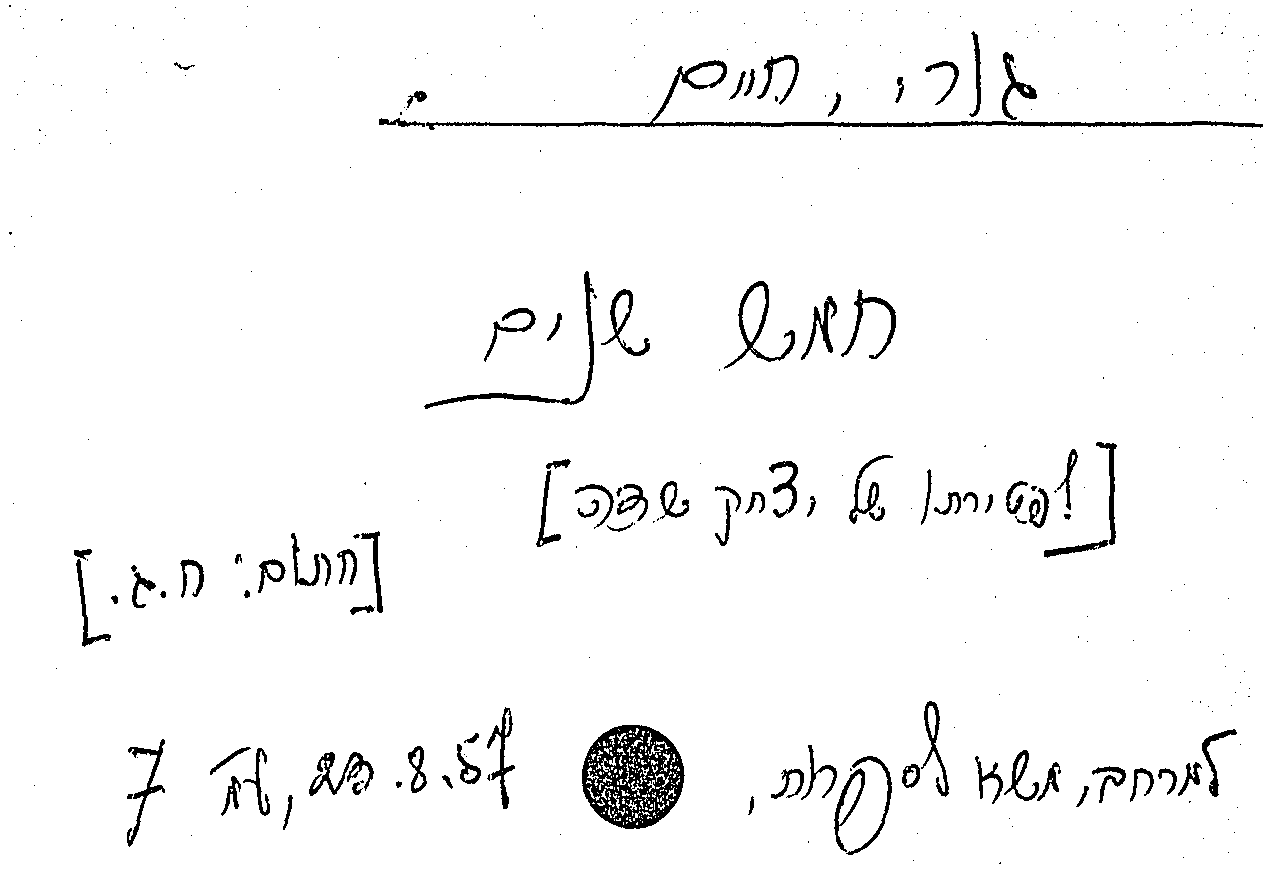 גורי, חיים
חמש שנים
[לפטירתו של יצחק שדה]
[חתום: ח.ג.]
למרחב, משא לספרות, 23.8.57, עמ' 7